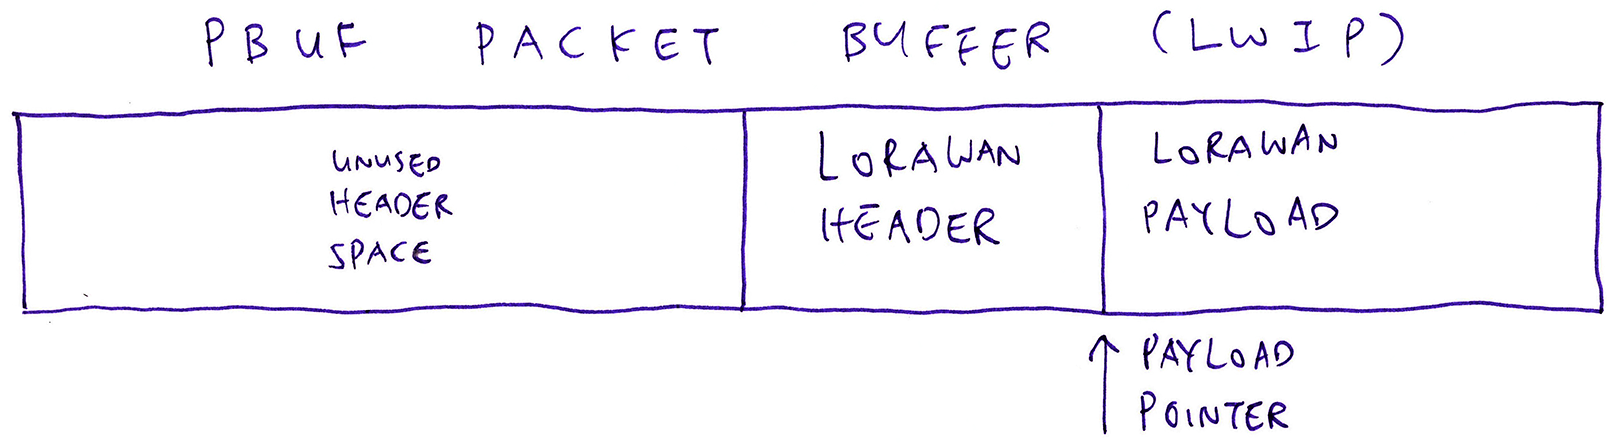 PBUF PACKET BUFFER (LWIP)
UNUSED
HEADER
SPACE
LORAWAN
HEADER
LORAWAN
PAYLOAD
PAYLOAD
POINTER